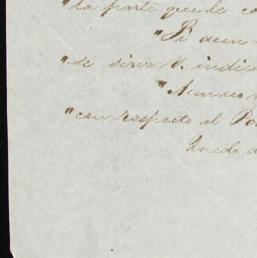 "la parte que le co
"Si aun
"se sirva V. indic
"Aunque
"con respecto al Po
Quedo d